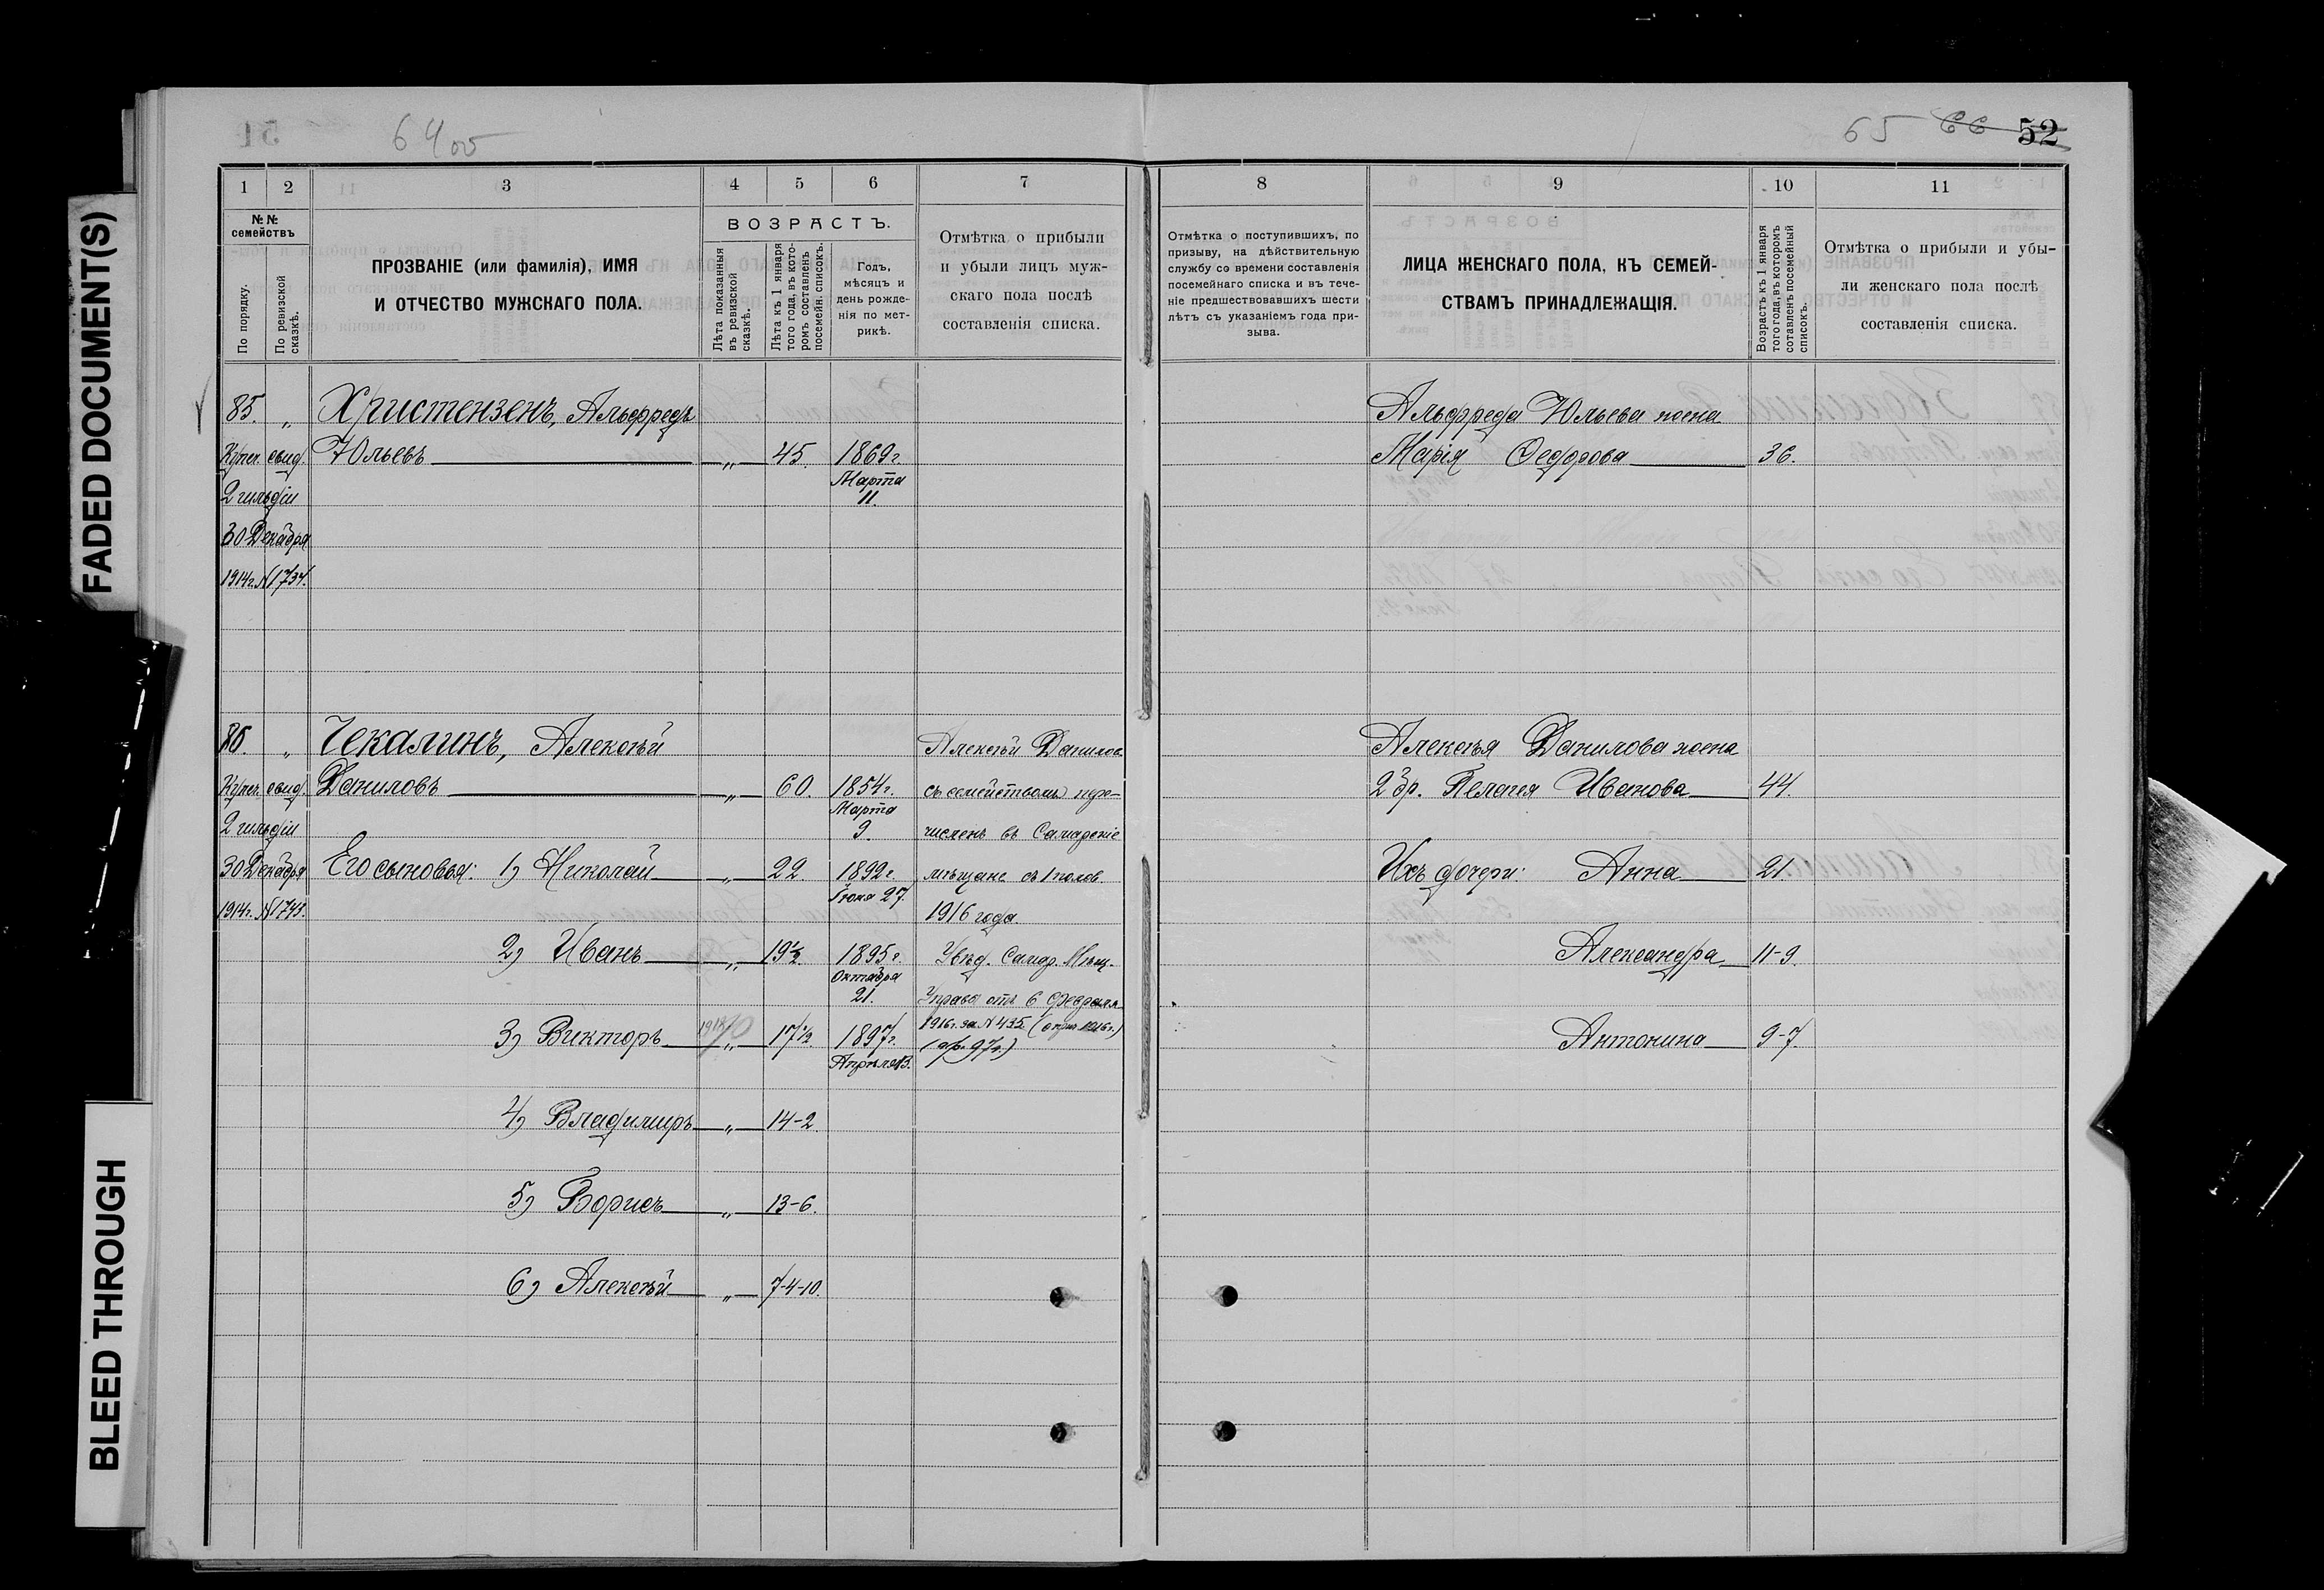 FADED DOCUMENT(S)
BLEED THROUGH
64 об
65 66 52
1 2 3 4 5 6 7
№№ семействъ
По порядку.
По ревизской сказкѣ.
ПРОЗВАНІЕ (или фамилія), ИМЯ
И ОТЧЕСТВО МУЖСКАГО ПОЛА.
ВОЗРАСТЪ.
Лѣта показанныя
въ ревизской
сказкѣ.
Лѣта къ 1 января
того года, въ кото-
ромъ составленъ
посемейн. списокъ.
Годъ,
мѣсяцъ и
день рожде-
нія по мет-
рикѣ.
Отмѣтка о прибыли
и убыли лицъ муж-
скаго пола послѣ
составленія списка.
8 9 10 11
Отмѣтка о поступившихъ, по
призыву, на дѣйствительную
службу со времени составленія
посемейнаго списка и въ тече-
ніе предшествовавшихъ шести
лѣтъ съ указаніемъ года при-
зыва.
ЛИЦА ЖЕНСКАГО ПОЛА, КЪ СЕМЕЙ-
СТВАМЪ ПРИНАДЛЕЖАЩІЯ.
Возрастъ къ 1 января
того года, въ которомъ
составленъ посемейный
списокъ.
Отмѣтка о прибыли и убы-
ли женскаго пола послѣ
составленія списка.
85. „ Христензенъ, Альфредъ
Купеч. свид. Юльевъ „ 45. 1869 г.
2 гильдіи Марта
11.
30 Декабря
1914 г. № 1734.
Альфреда Юльева жена
Марія Ѳедорова 36.
86. „ Чекалинъ, Алексѣй Алексѣй Данилов.
Купеч. свид. Даниловъ „ 60. 1854 г. съ семействомъ пере-
Марта
2 гильдіи 9. численъ въ Самарскіе
30 Декабря Его сыновья: 1) Николай „ 22. 1892 г. мѣщане съ 1 полов.
Іюня 27.
1914 г. № 1743. 1916 года.
2) Иванъ „ 19½. 1895 г. Увѣд. Самар. Мѣщ.
Октября
21. Управы отъ 6 февраля
3) Викторъ „ 17½ 1897 г. 1916 г. за № 435.
Апрѣля 13.
4) Владиміръ „ 14-2.
5) Борисъ „ 13-6.
6) Алексѣй „ 7-4-10.
Алексѣя Данилова жена
2 бр. Пелагея Иванова 44.
Ихъ дочери: Анна 21.
Александра 11-9.
Антонина 9-7.